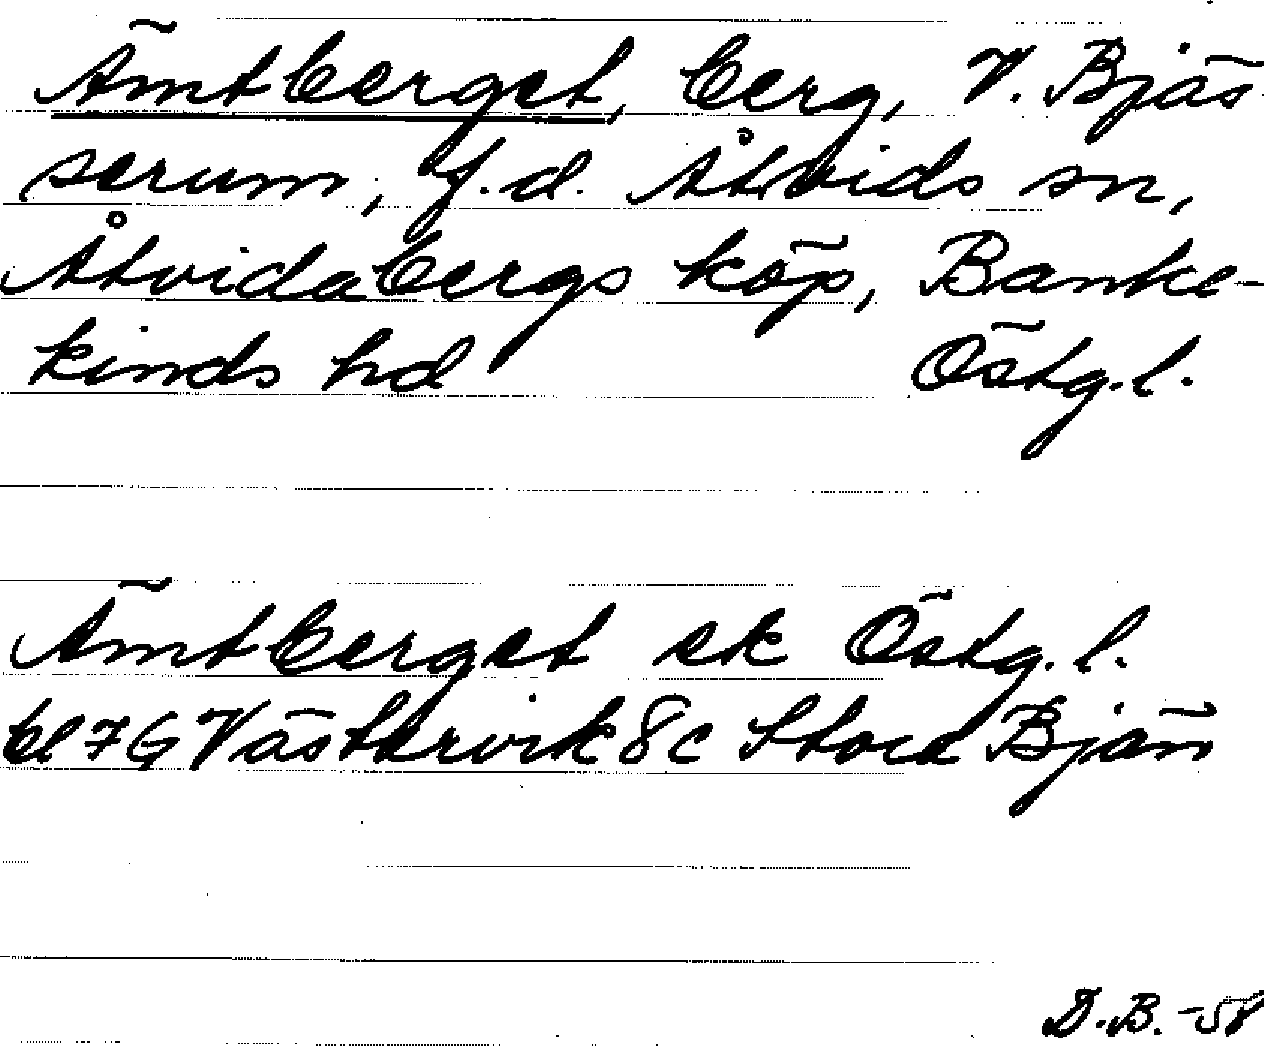 Ämtberget, berg, V. Bjäs
serum, f.d. Åtvids sn,
Åtvidabergs köp, Banke-
kinds hd Östg.l.
Ämtberget ek Östg. l.
bl 7G Västervik 8c Stora Bjän
D.B. -58